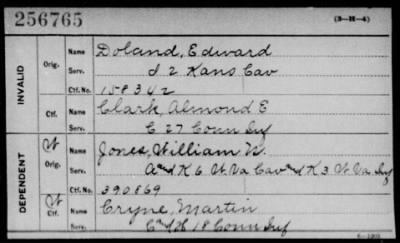 256765 (3-H-4)
INVALID
Orig. Name Doland, Edward
Serv. I 2 Kans Cav
Ctf. No. 158342
Ctf. Name Clark, Almond E
Serv. C 27 Conn Inf
DEPENDENT
W Orig. Name Jones, William W.
Serv. A and K 6 W.Va Cav and K 3 W.Va Inf
Ctf. No. 390869
W Ctf. Name Cryne, Martin
Serv. C 18 Conn Inf